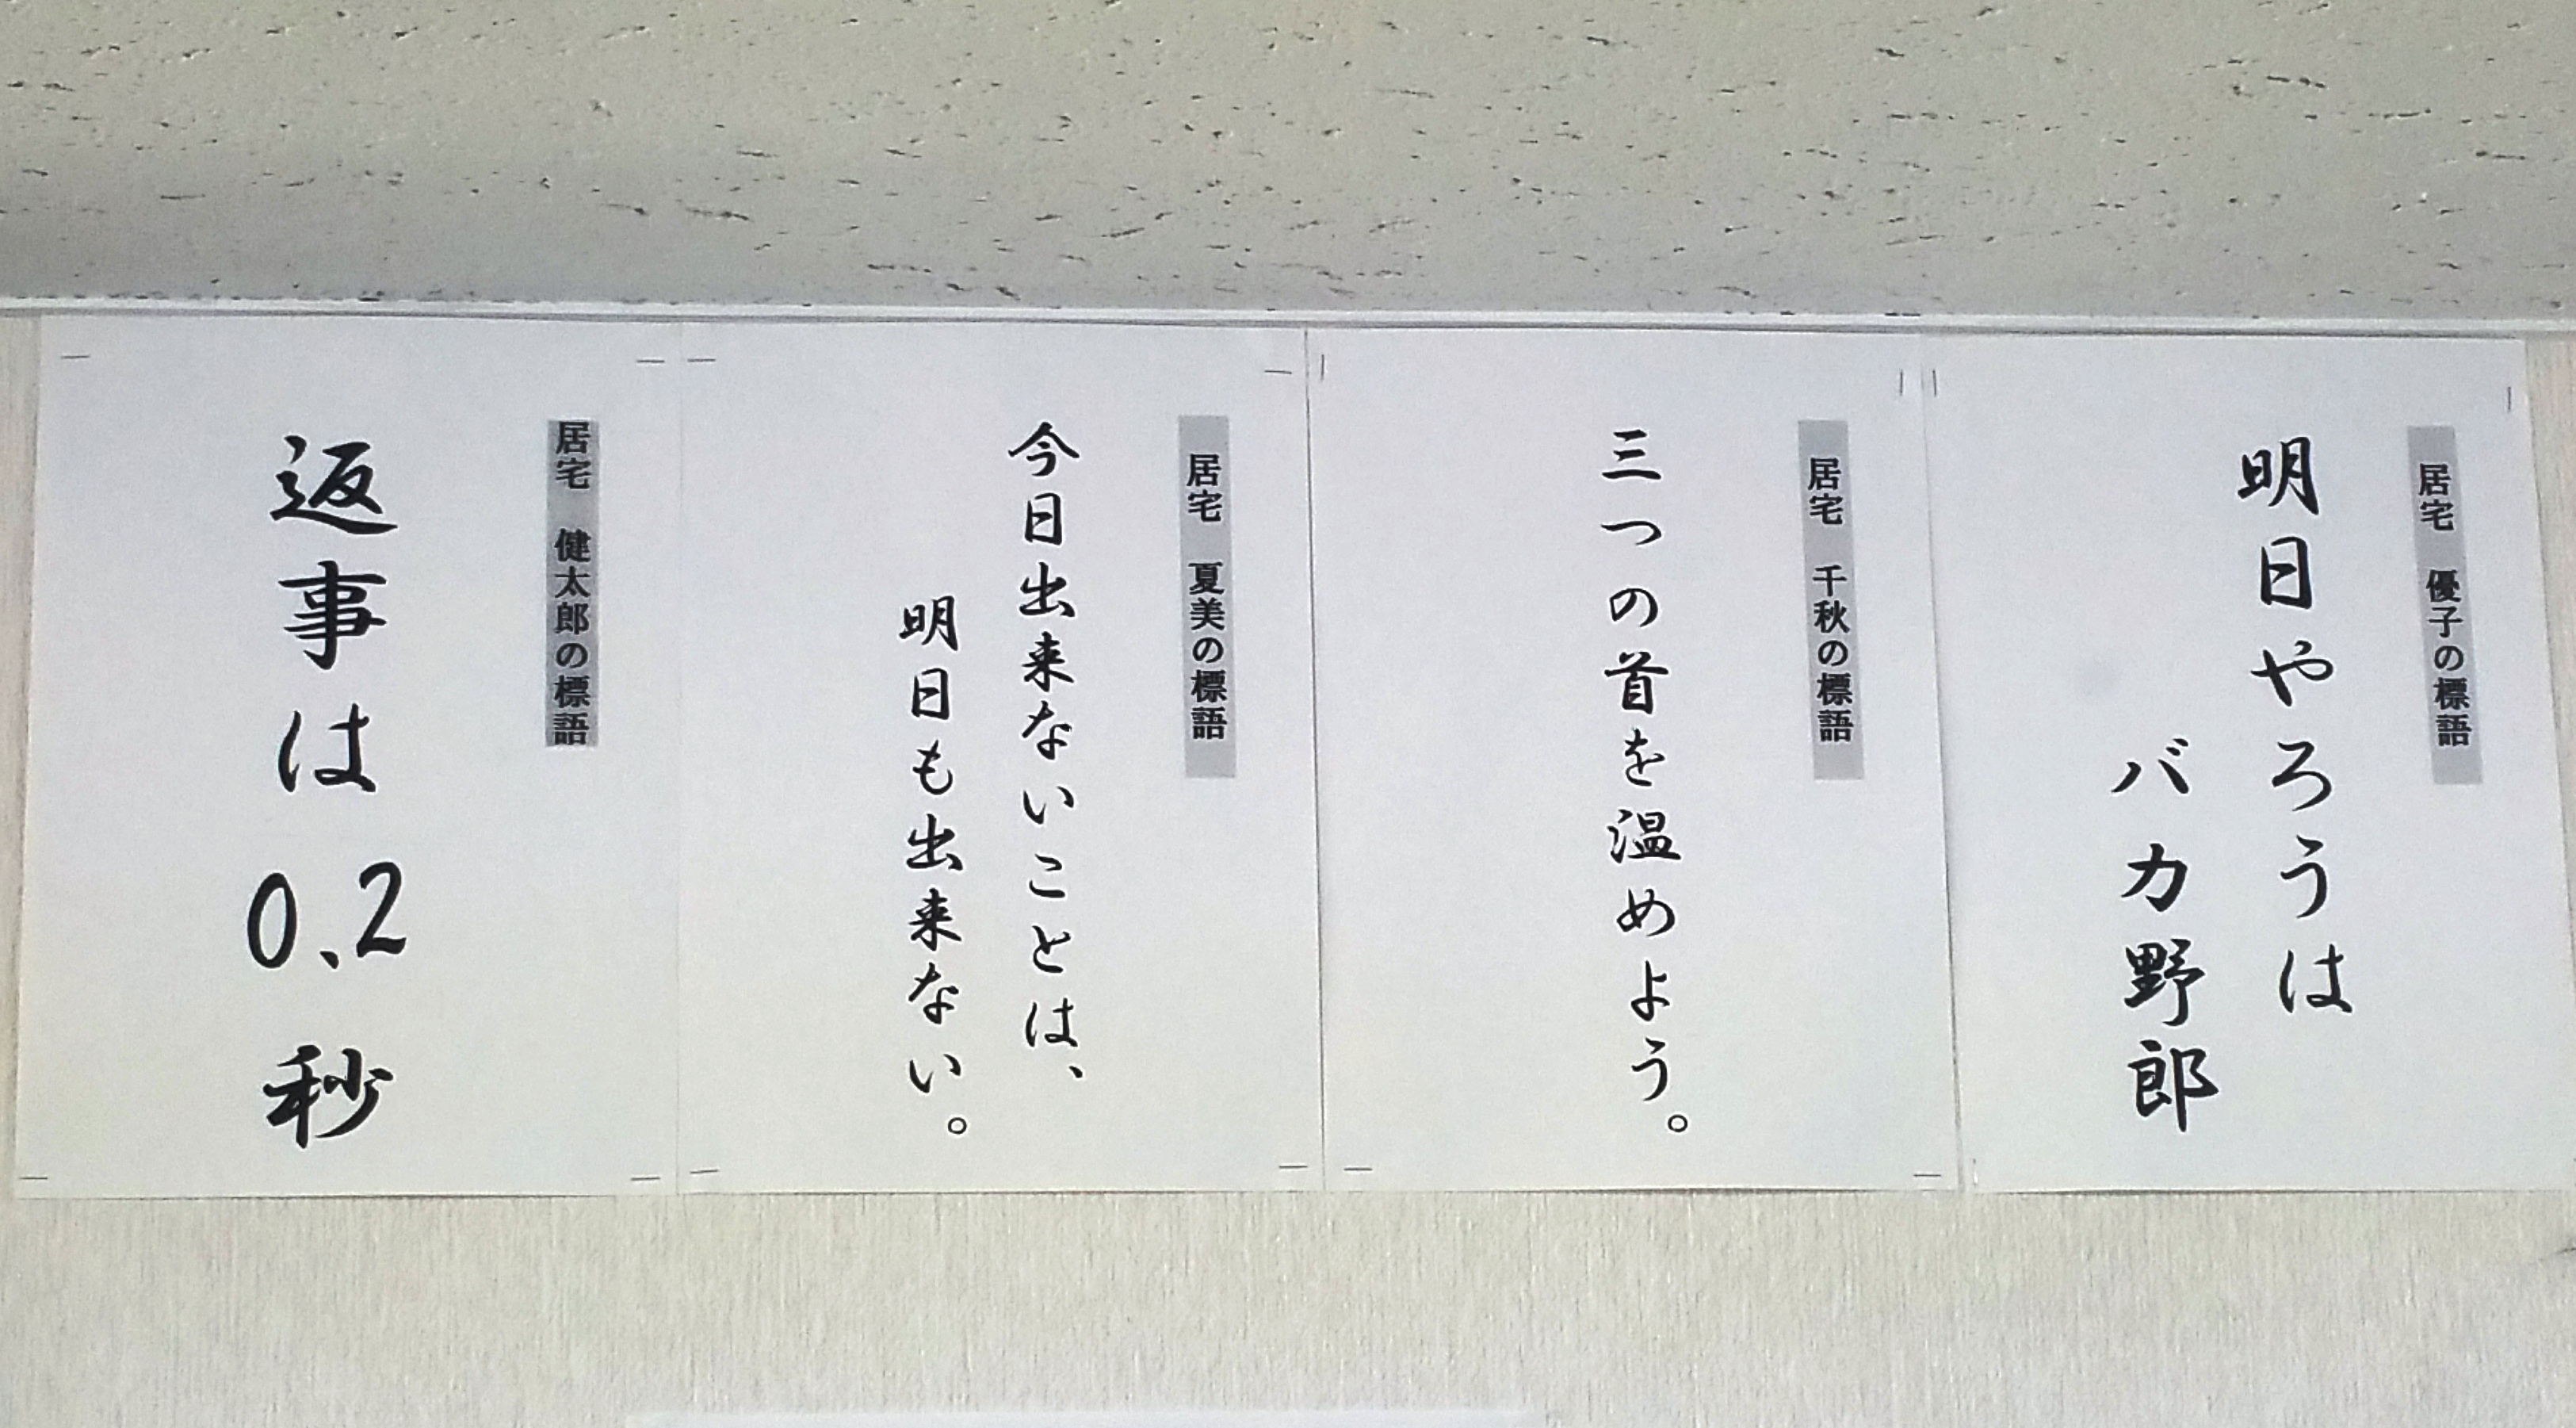 居宅　優子の標語
明日やろうは
バカ野郎
居宅　千秋の標語
三つの首を温めよう。
居宅　夏美の標語
今日出来ないことは、
明日も出来ない。
居宅　健太郎の標語
返事は0.2秒